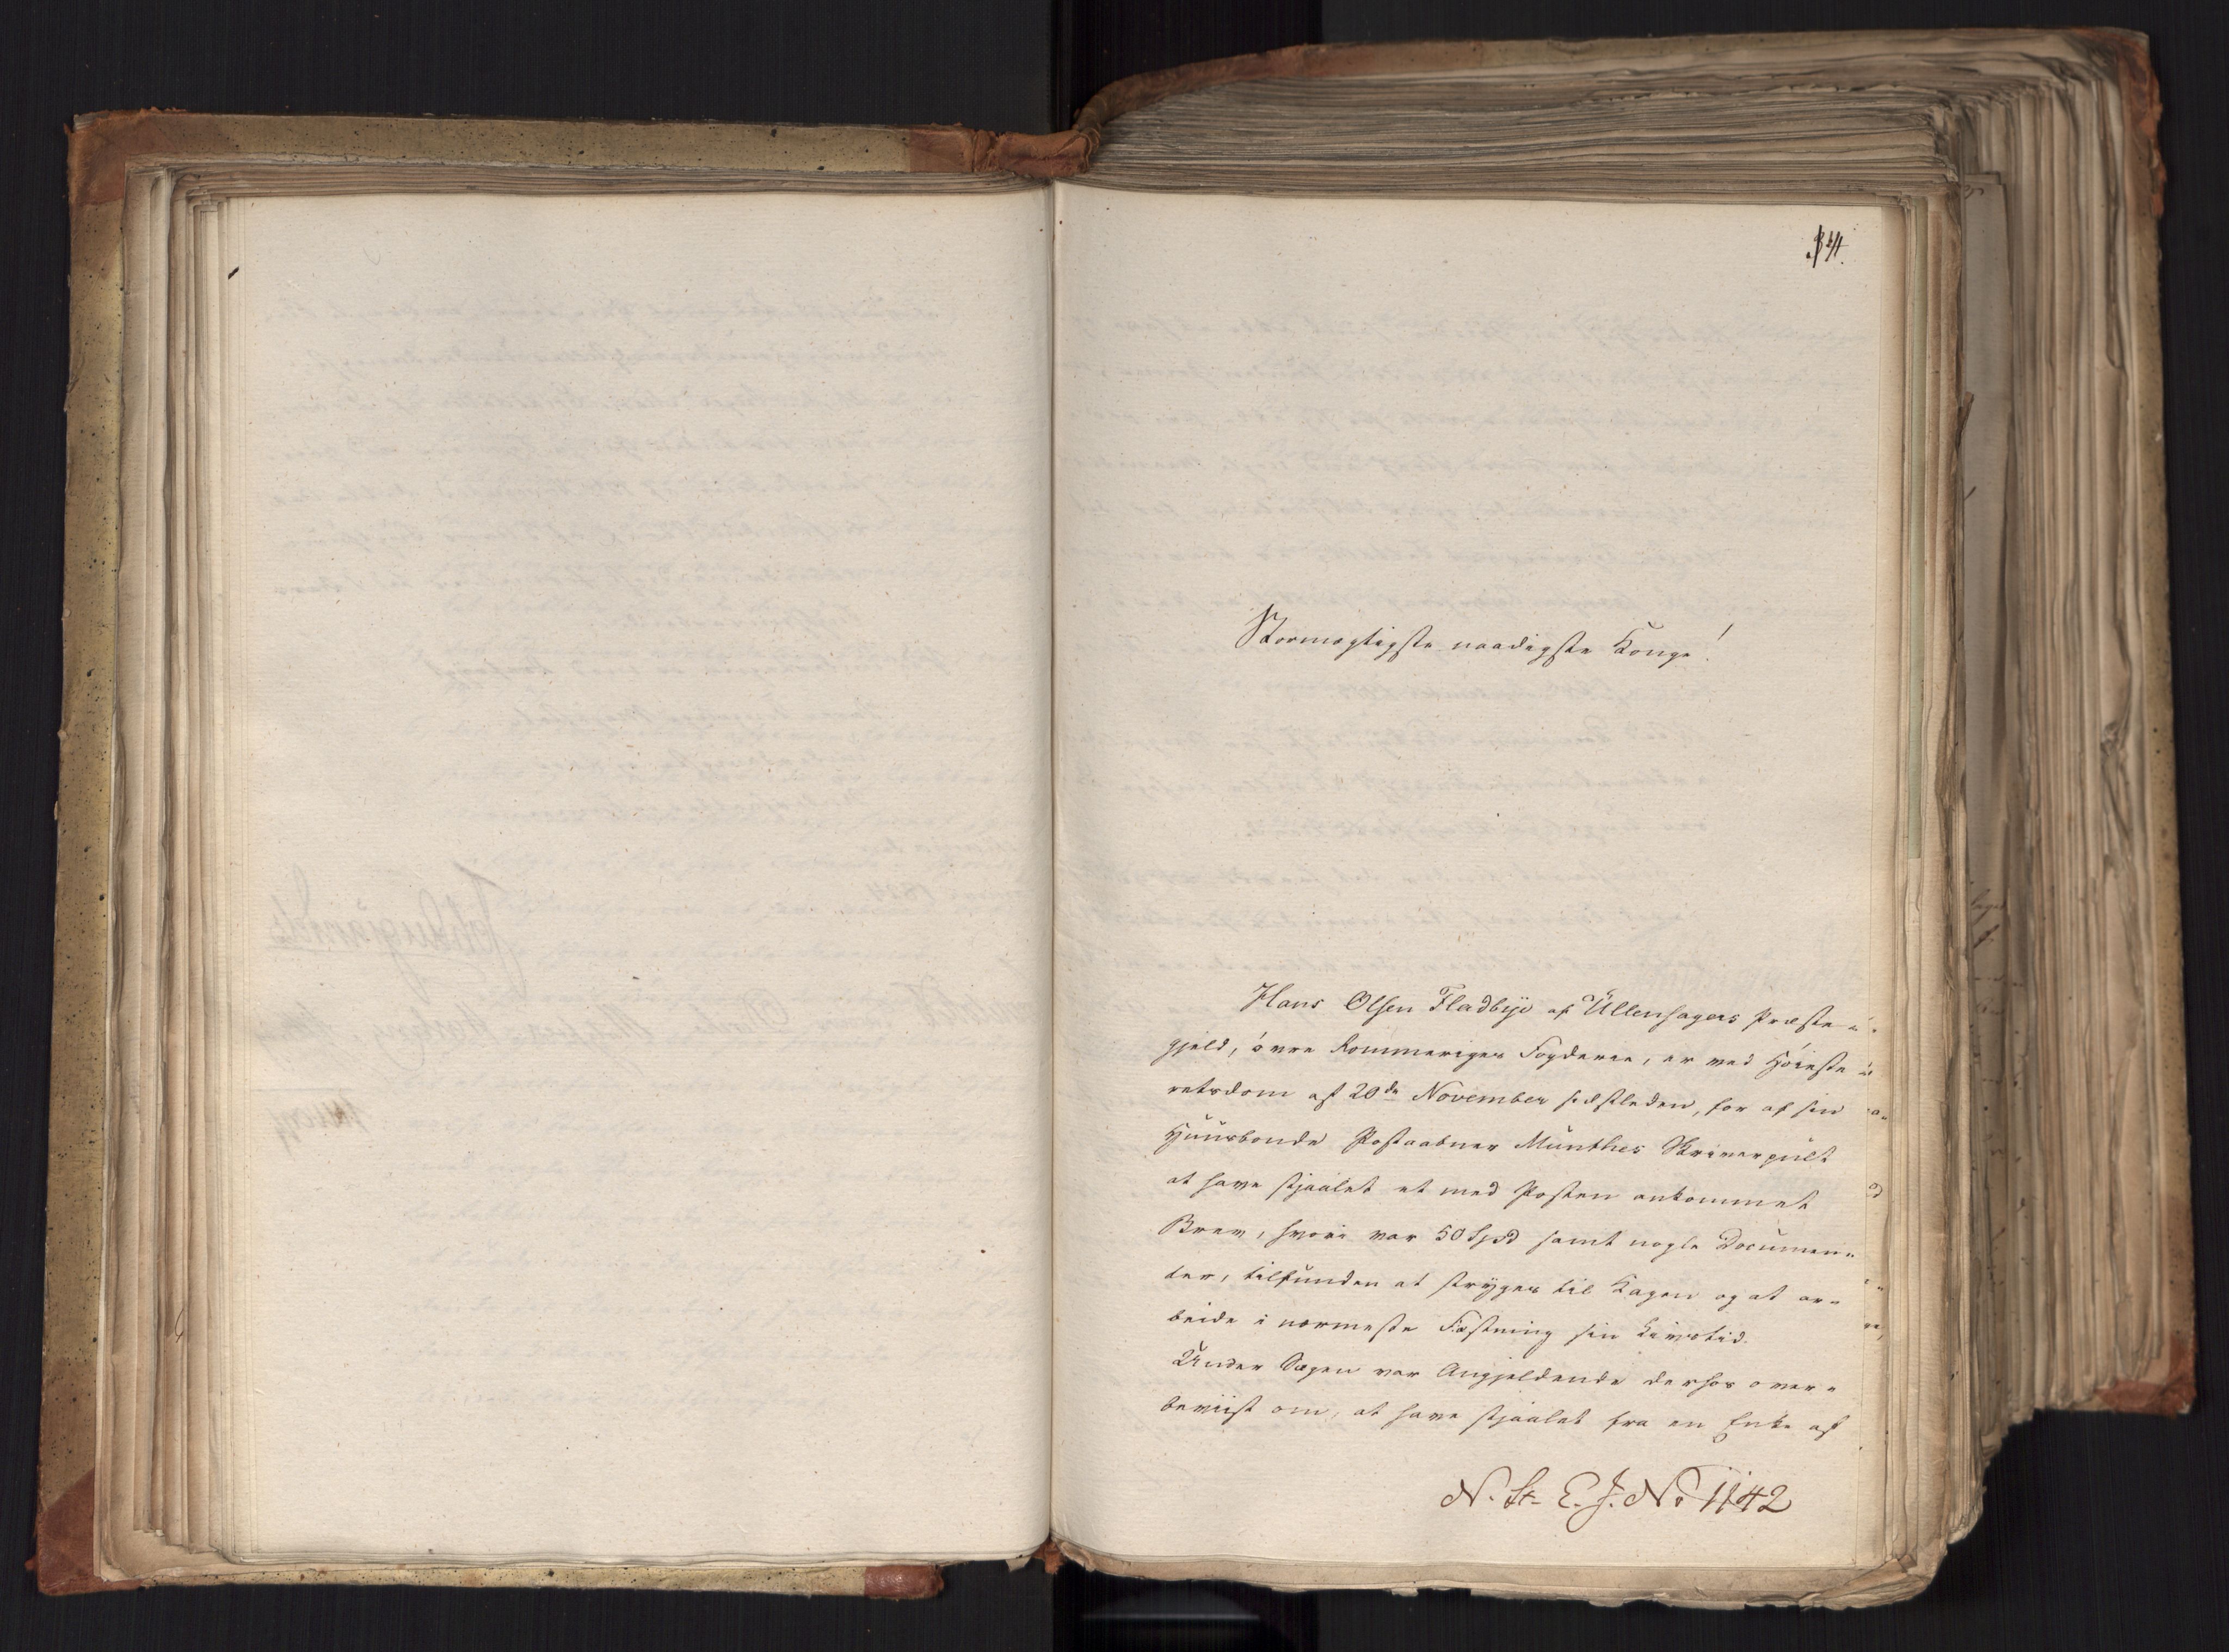 Stormægtigste naadigste Konge!
Hans Olsen Fladbye af Ullensagers Præste-
gjeld, øvre Rommeriges Fogderie, er ved Høieste-
retsdom af 20de November sidstleden, for af sin
Huusbonde Postaabner Munthes Skriverpult
at have stjaalet et med Posten ankommet
Brev, hvori var 50 Spd samt nogle Documen-
ter, tilfunden at stryges til Kagen og at ar-
beide i nærmeste Fæstning sin Livstid.
Under Sagen var Angjeldende derhos over-
beviist om, at have stjaalet fra en Enke af
N. St. E. J. No 1142